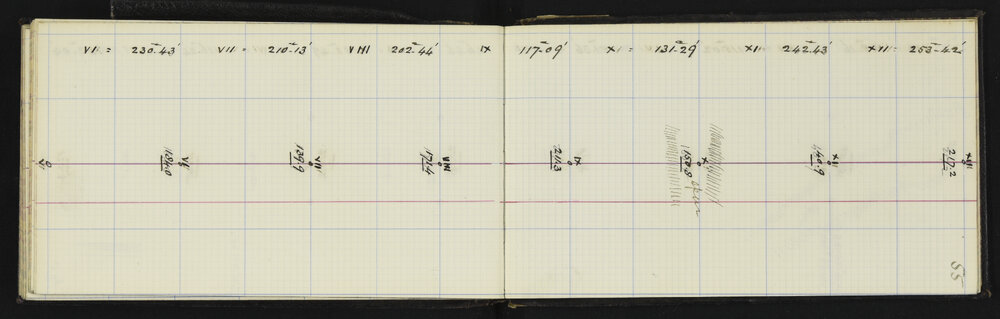 VI = 230-43' VII = 210-13' VIII 202-44' IX 117-09' XI = 131-29' XII 242-43' XIII 253-42'
VI 184.0
VII 139.9
VIII 171.4
IX 211.3
X 150.8
XII 140.9
XIII 217.2
55